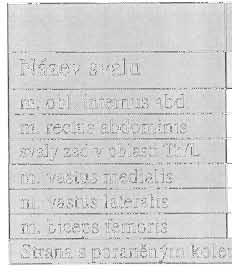 Název svalu
m. obl. internus abd
m. rectus abdominis
svaly zad v oblasti Th/L
m. vastus medialis
m. vastus lateralis
m. biceps femoris
Strana s poraněným kolen